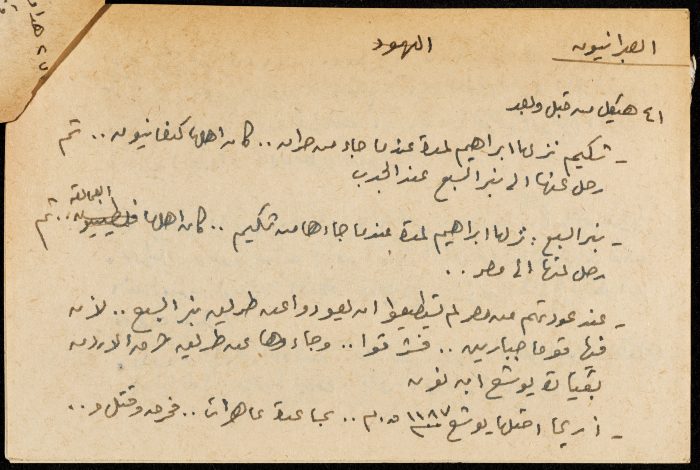 العبرانيون
اليهود
٤١ هيكل من قبل وبعد
- شكيم نزلها ابراهيم لمدة عندما جاء من حران .. كان اهلها كنعانيون .. ثم
رحل عنها الى بئر السبع عند الجدب
- بئر السبع : نزلها ابراهيم لمدة عندما جاءها من شكيم .. كان اهلها فلسطينيون العمالقة .. ثم
رحل عنها الى مصر ..
- عند عودتهم من مصر لم يستطيعوا ان يعودوا عن طريق بئر السبع .. لأن
فيها قوما جبارين .. فشرقوا .. وجاءوها عن طريق شرق الاردن
بقيادة يوشع ابن نون
- اريحا احتلها يوشع ١١٨٧ ق.م .. بمساعدة عاهرات .. فحرق وقتل و..